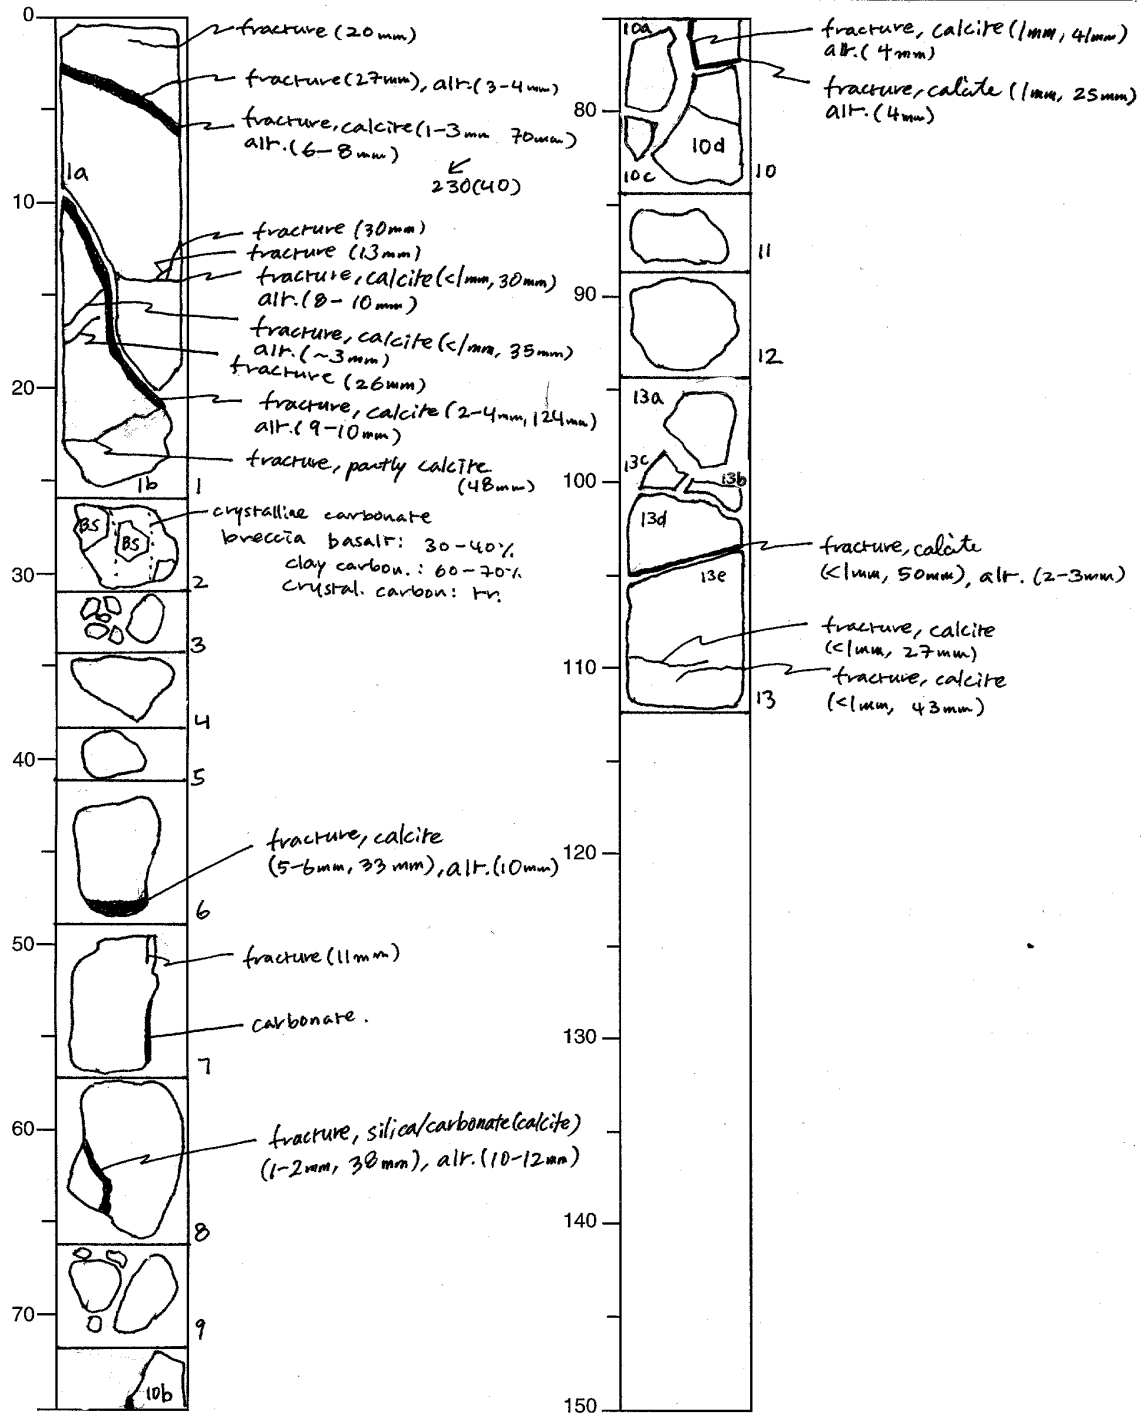 0
fracture (20mm)
fracture (27mm), alt. (3-4mm)
fracture, calcite (1-3mm 70mm)
alt. (6-8mm)
230(40)
1a
10
fracture (30mm)
fracture (13mm)
fracture, calcite (<1mm, 30mm)
alt. (8-10mm)
fracture, calcite (<1mm, 35mm)
alt. (~3mm)
fracture (26mm)
20
fracture, calcite (2-4mm, 124mm)
alt. (9-10mm)
fracture, partly calcite
(48mm)
1b
1
BS
BS
crystalline carbonate
breccia basalt: 30-40%
clay carbon.: 60-70%
crystal. carbon: tr.
30
2
3
4
40
5
fracture, calcite
(5-6mm, 33mm), alt. (10mm)
6
50
fracture (11mm)
carbonate.
7
60
fracture, silica/carbonate (calcite)
(1-2mm, 38mm), alt. (10-12mm)
8
70
9
10b
10a
fracture, calcite (1mm, 41mm)
alt. (4mm)
fracture, calcite (1mm, 25mm)
alt. (4mm)
80
10d
10c
10
11
90
12
13a
13c
100
13b
13d
fracture, calcite
(<1mm, 50mm), alt. (2-3mm)
13e
fracture, calcite
(<1mm, 27mm)
110
fracture, calcite
(<1mm, 43mm)
13
120
130
140
150